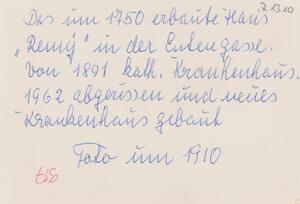 7.13.10
Das um 1750 erbaute Haus
„Remy" in der Entengasse.
Von 1891 kath. Krankenhaus.
1962 abgerissen und neues
Krankenhaus gebaut
Foto um 1910